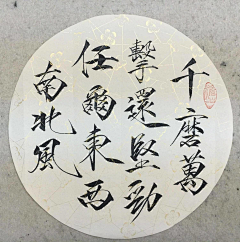 千磨萬
擊還堅勁
任爾東西
南北風